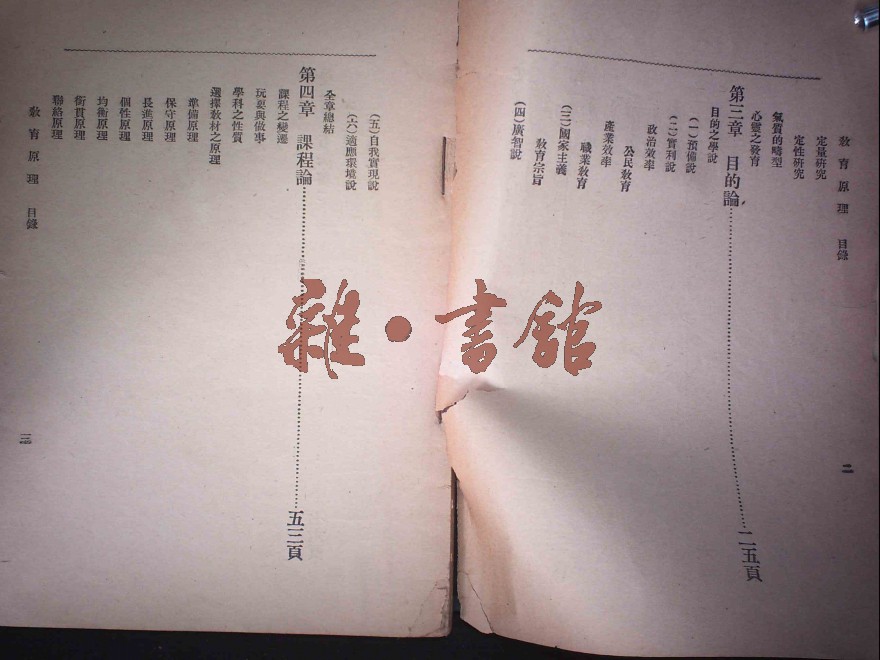 教育原理 目錄
二
定量研究
定性研究
氣質的畸型
心靈之發育
第三章 目的論
二五頁
目的之學說
(一)預備說
(二)實利說
政治效率
公民教育
產業效率
職業教育
(三)國家主義
教育宗旨
(四)廣智說
(五)自我實現說
(六)適應環境說
全章總結
第四章 課程論
五三頁
課程之變遷
玩耍與做事
學科之性質
選擇教材之原理
準備原理
保守原理
長進原理
個性原理
均衡原理
銜貫原理
聯絡原理
教育原理 目錄
三
雜·書館